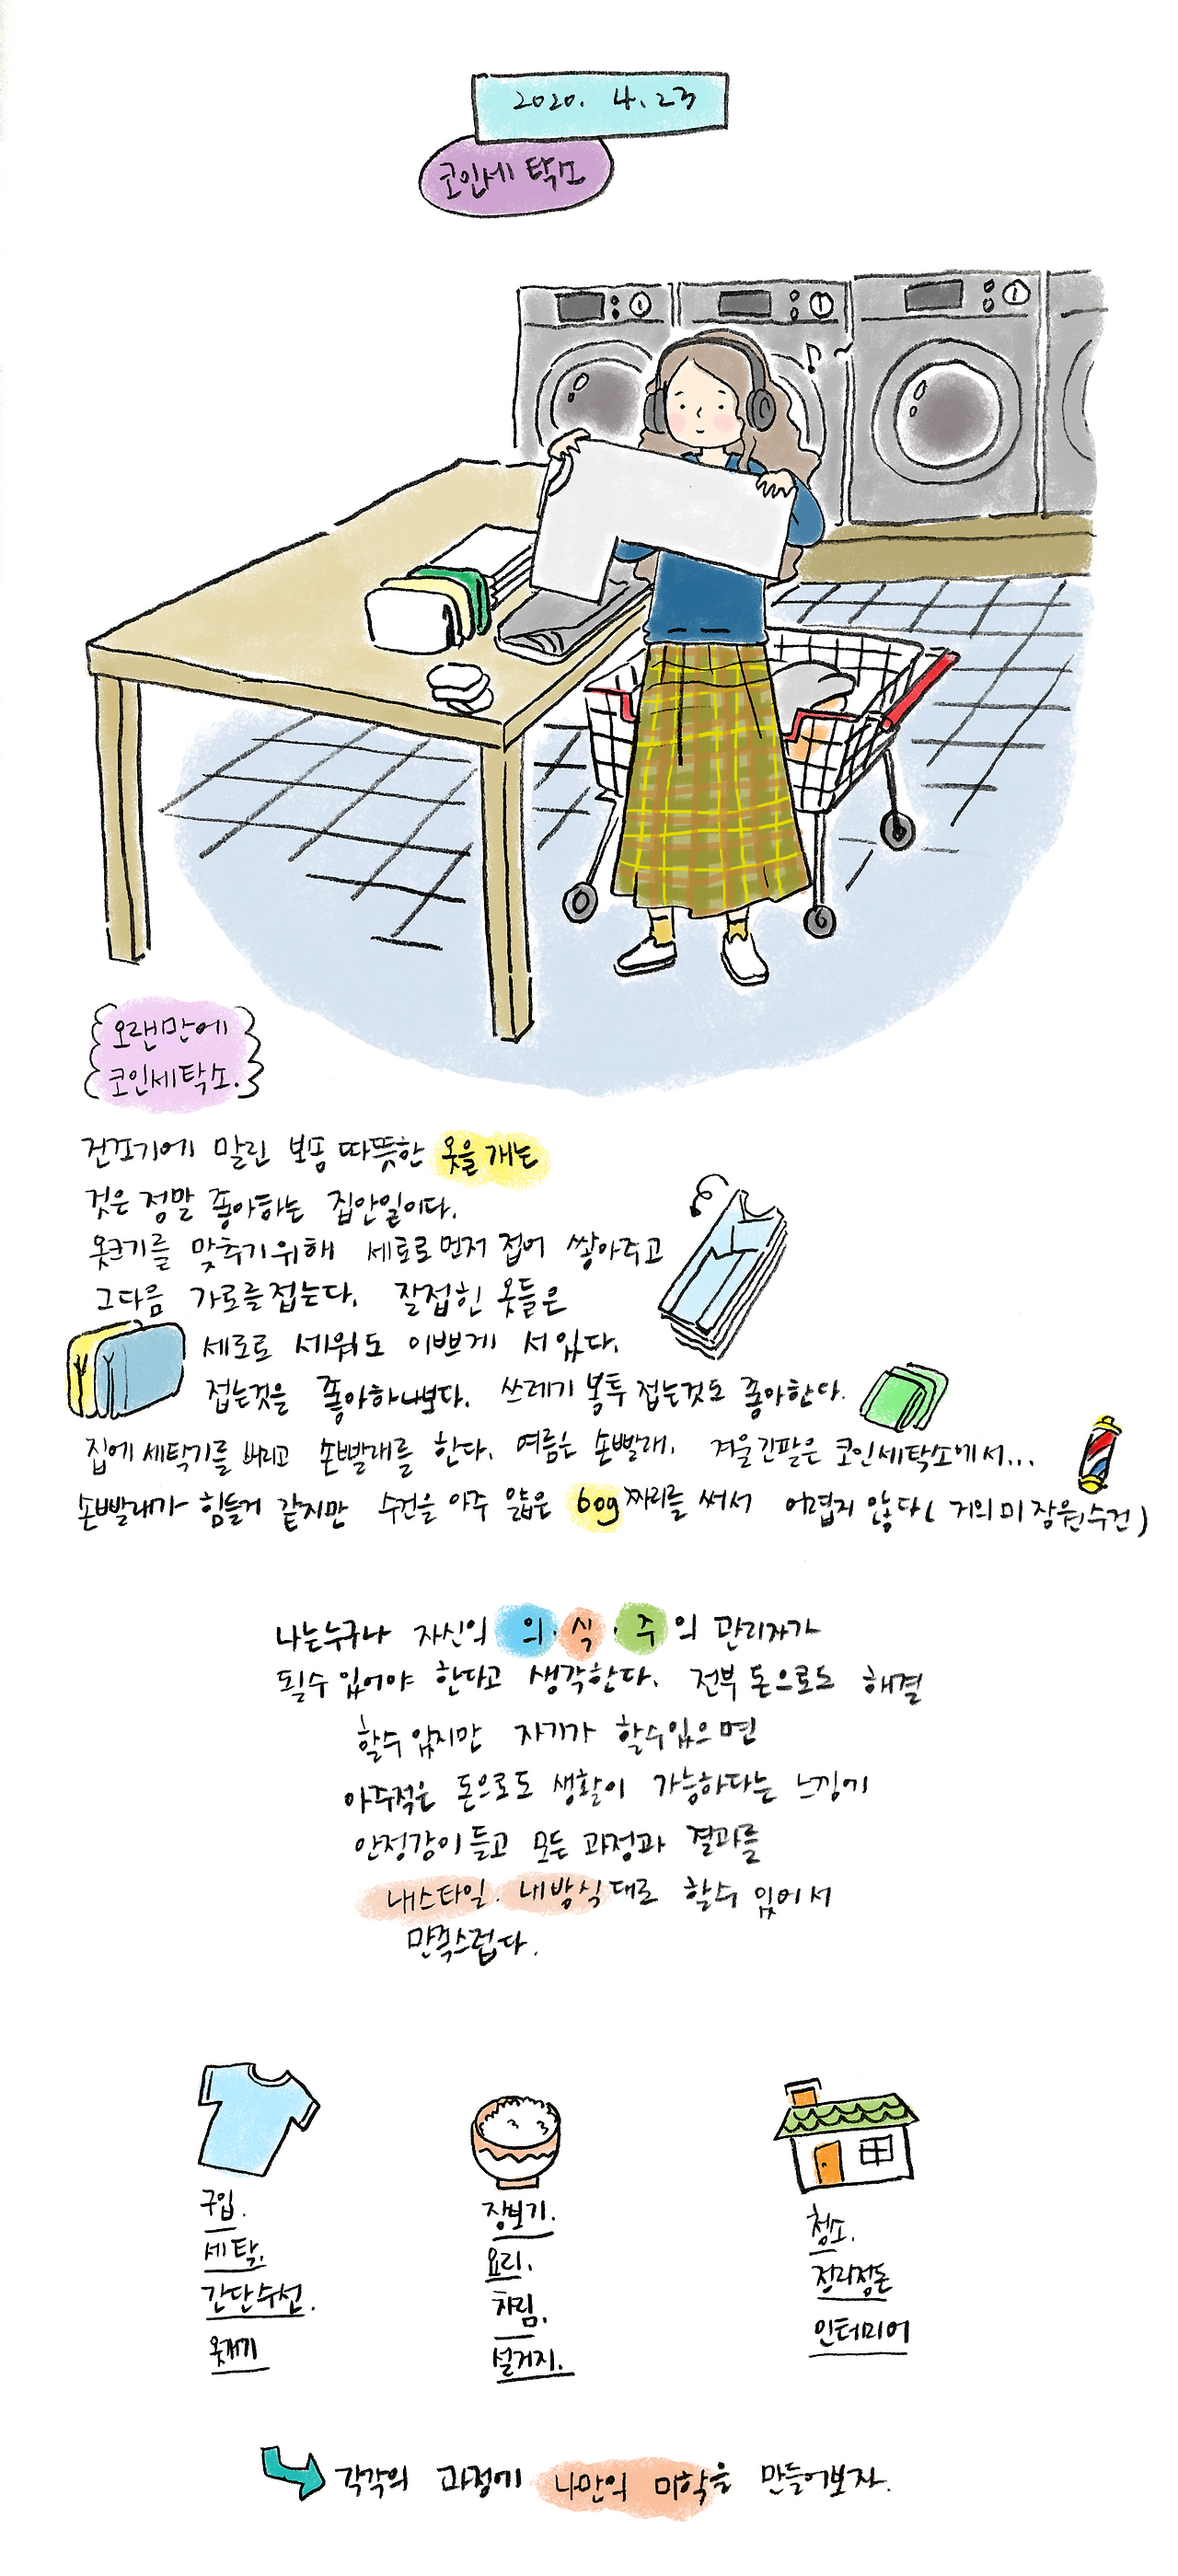 2020. 4. 23
코인세탁소
오랜만에
코인세탁소.
건조기에 말린 보송 따뜻한 옷을 개는
것은 정말 좋아하는 집안일이다.
옷크기를 맞추기위해 세로로 먼저 접어 쌓아주고
그다음 가로를접는다. 잘접힌 옷들은
세로로 세워도 이쁘게 서있다.
접는것을 좋아하나보다. 쓰레기 봉투 접는것도 좋아한다.
집에 세탁기를 버리고 손빨래를 한다. 여름은 손빨래. 겨울긴팔은 코인세탁소에서...
손빨래가 힘들거 같지만 수건을 아주 얇은 60g짜리를 써서 어렵지 않다( 거의 미장원수건)
나는누구나 자신의 의·식·주의 관리자가
될수있어야 한다고 생각한다. 전부 돈으로도 해결
할수있지만 자기가 할수있으면
아주적은 돈으로도 생활이 가능하다는 느낌에
안정감이들고 모든 과정과 결과를
내스타일. 내방식대로 할수 있어서
만족스럽다.
구입.
세탁.
간단수선.
옷개기
장보기.
요리.
차림.
설거지.
청소.
정리정돈
인테리어
각각의 과정에 나만의 미학을 만들어보자.